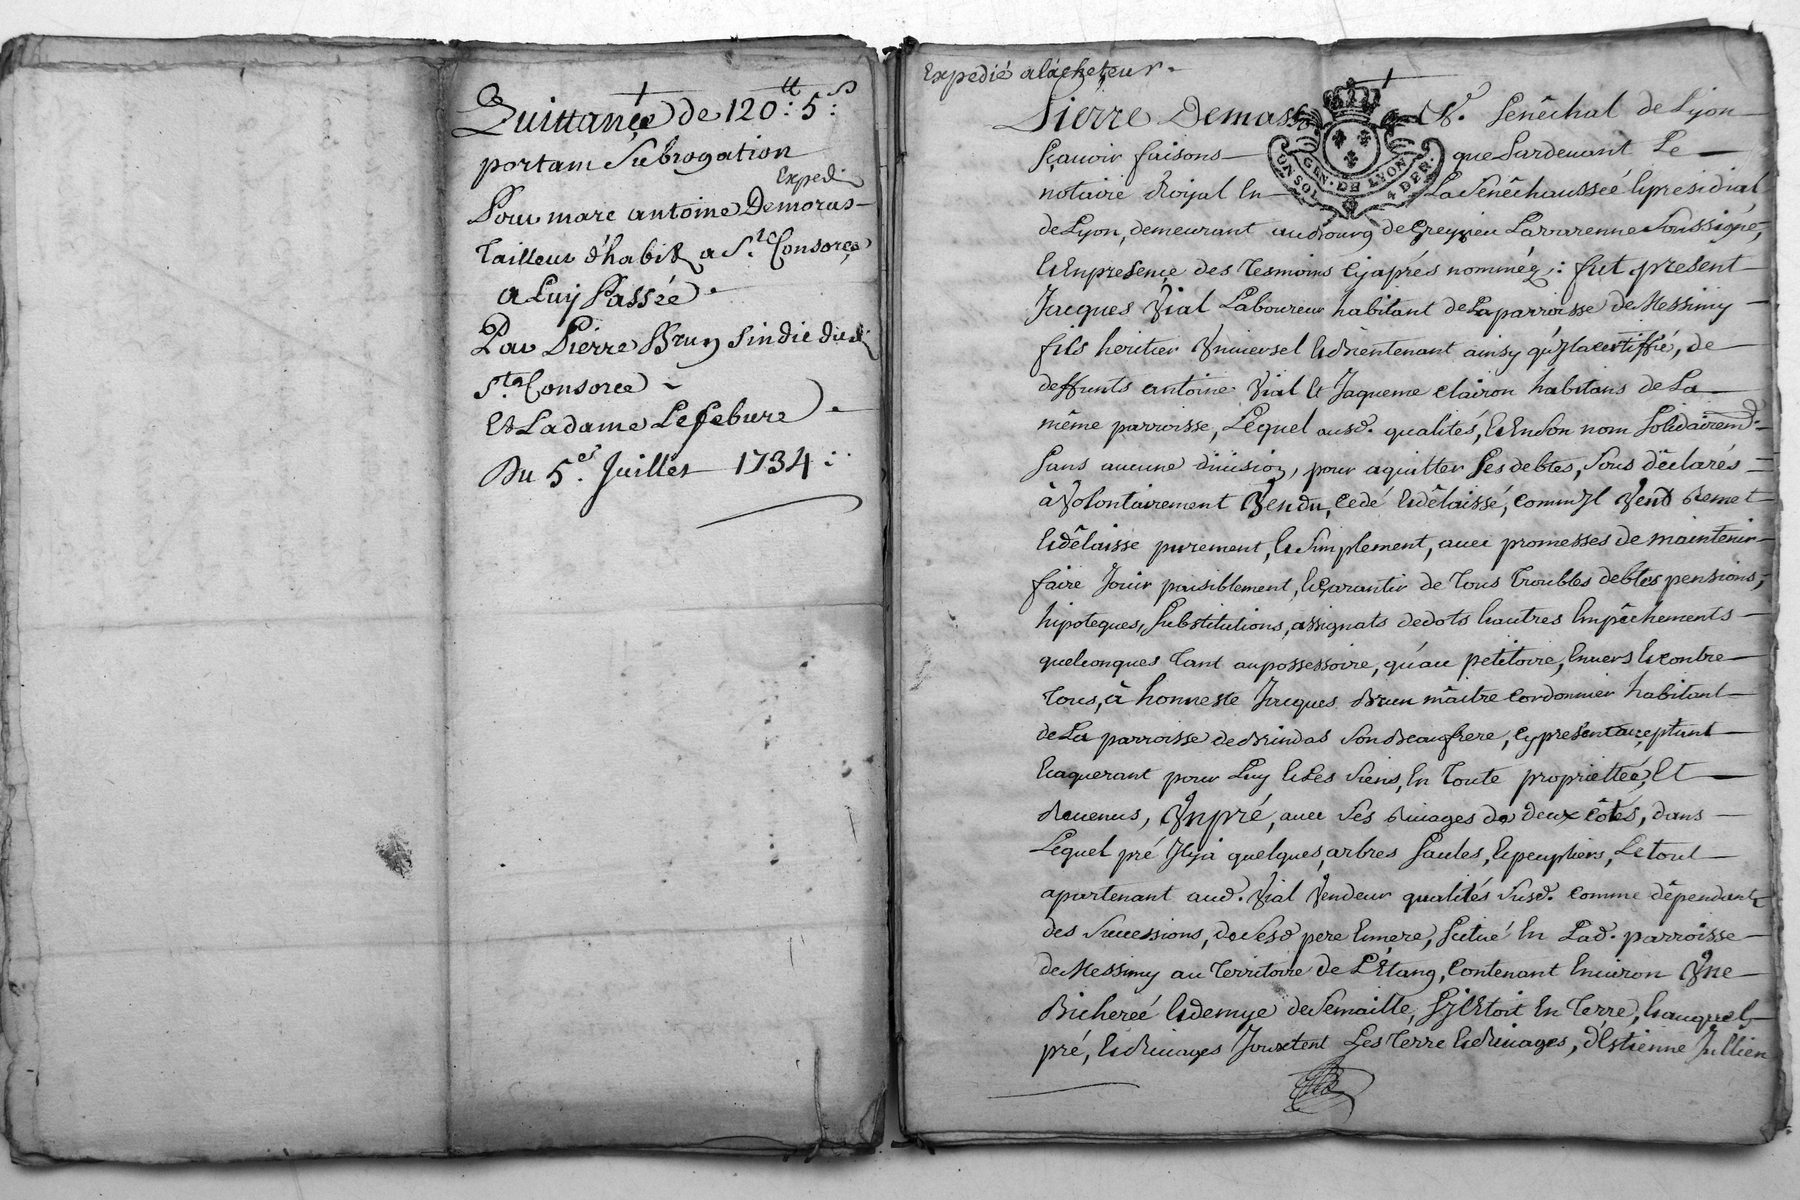 Quittance de 120 tt: 5 s:
portant Subrogation
Expedi
Pour marc antoine Demoras
Tailleur d'habit a Ste Consorce
a Luy Passée
Par Pierre Brun Sindic dud
Ste Consorce
Et La dame Lefebure
Du 5e Juillet 1734
Expedié a lacheteur
Pierre Demass Sénêchal de Lyon
sçavoir faisons que Pardevant Le
notaire Royal en La Sénêchausseé & presidial
de Lyon, demeurant au Bourg de Greyzieu Lavarenne Soussigné,
& En presence des Tesmoins cy aprés nomméz: fut present
Jacques Vial Laboureur habitant de La parroisse de Messimy
fils heritier Vniversel & Bientenant ainsy qu'Il a certiffié, de
deffunts antoine Vial & Jaqueme Clairon habitans de La
même parroisse, Lequel ausd. qualités, & En Son nom Solidairemt.
Sans aucune division, pour aquitter Ses debtes, Sous dêclarés
à Volontairement Vendu, Cedé & dêlaissé, comm'Il Vend Remet
& dêlaisse purement, & Simplement, avec promesses de maintenir
faire Jouir paisiblement, & Garantir de Tous Troubles debtes pensions,
hipoteques, Substitutions, assignats de dots & autres Empêchements
quelconques Tant au possessoire, qu'au petitoire, Envers & contre
Tous, à honneste Jacques Brun mâitre Cordonnier habitant
de La parroisse de Brindas Son Beaufrere, cy present acceptant
& aquerant pour Luy & Les Siens, En Toute proprietteé, Et
Revenus, Vn pré, avec Ses Rivages de deux côtés, dans
Lequel pré Il y a quelques arbres Saules, & peupliers, Le tout
apartenant aud. Vial Vendeur qualités Susd. comme dêpendants
des Successions, de Sesd pere & mere, Scitué En Lad. parroisse
de Messimy au Territoire de L'Etang, Contenant Environ Vne
Bichereé & demye de Semaille, S'il Etoit En Terre, & auquel
pré, & Rivages Jouxtent Les Terre & Rivages, d'Estienne Jullien
GEN. DE LYON
4 DER.